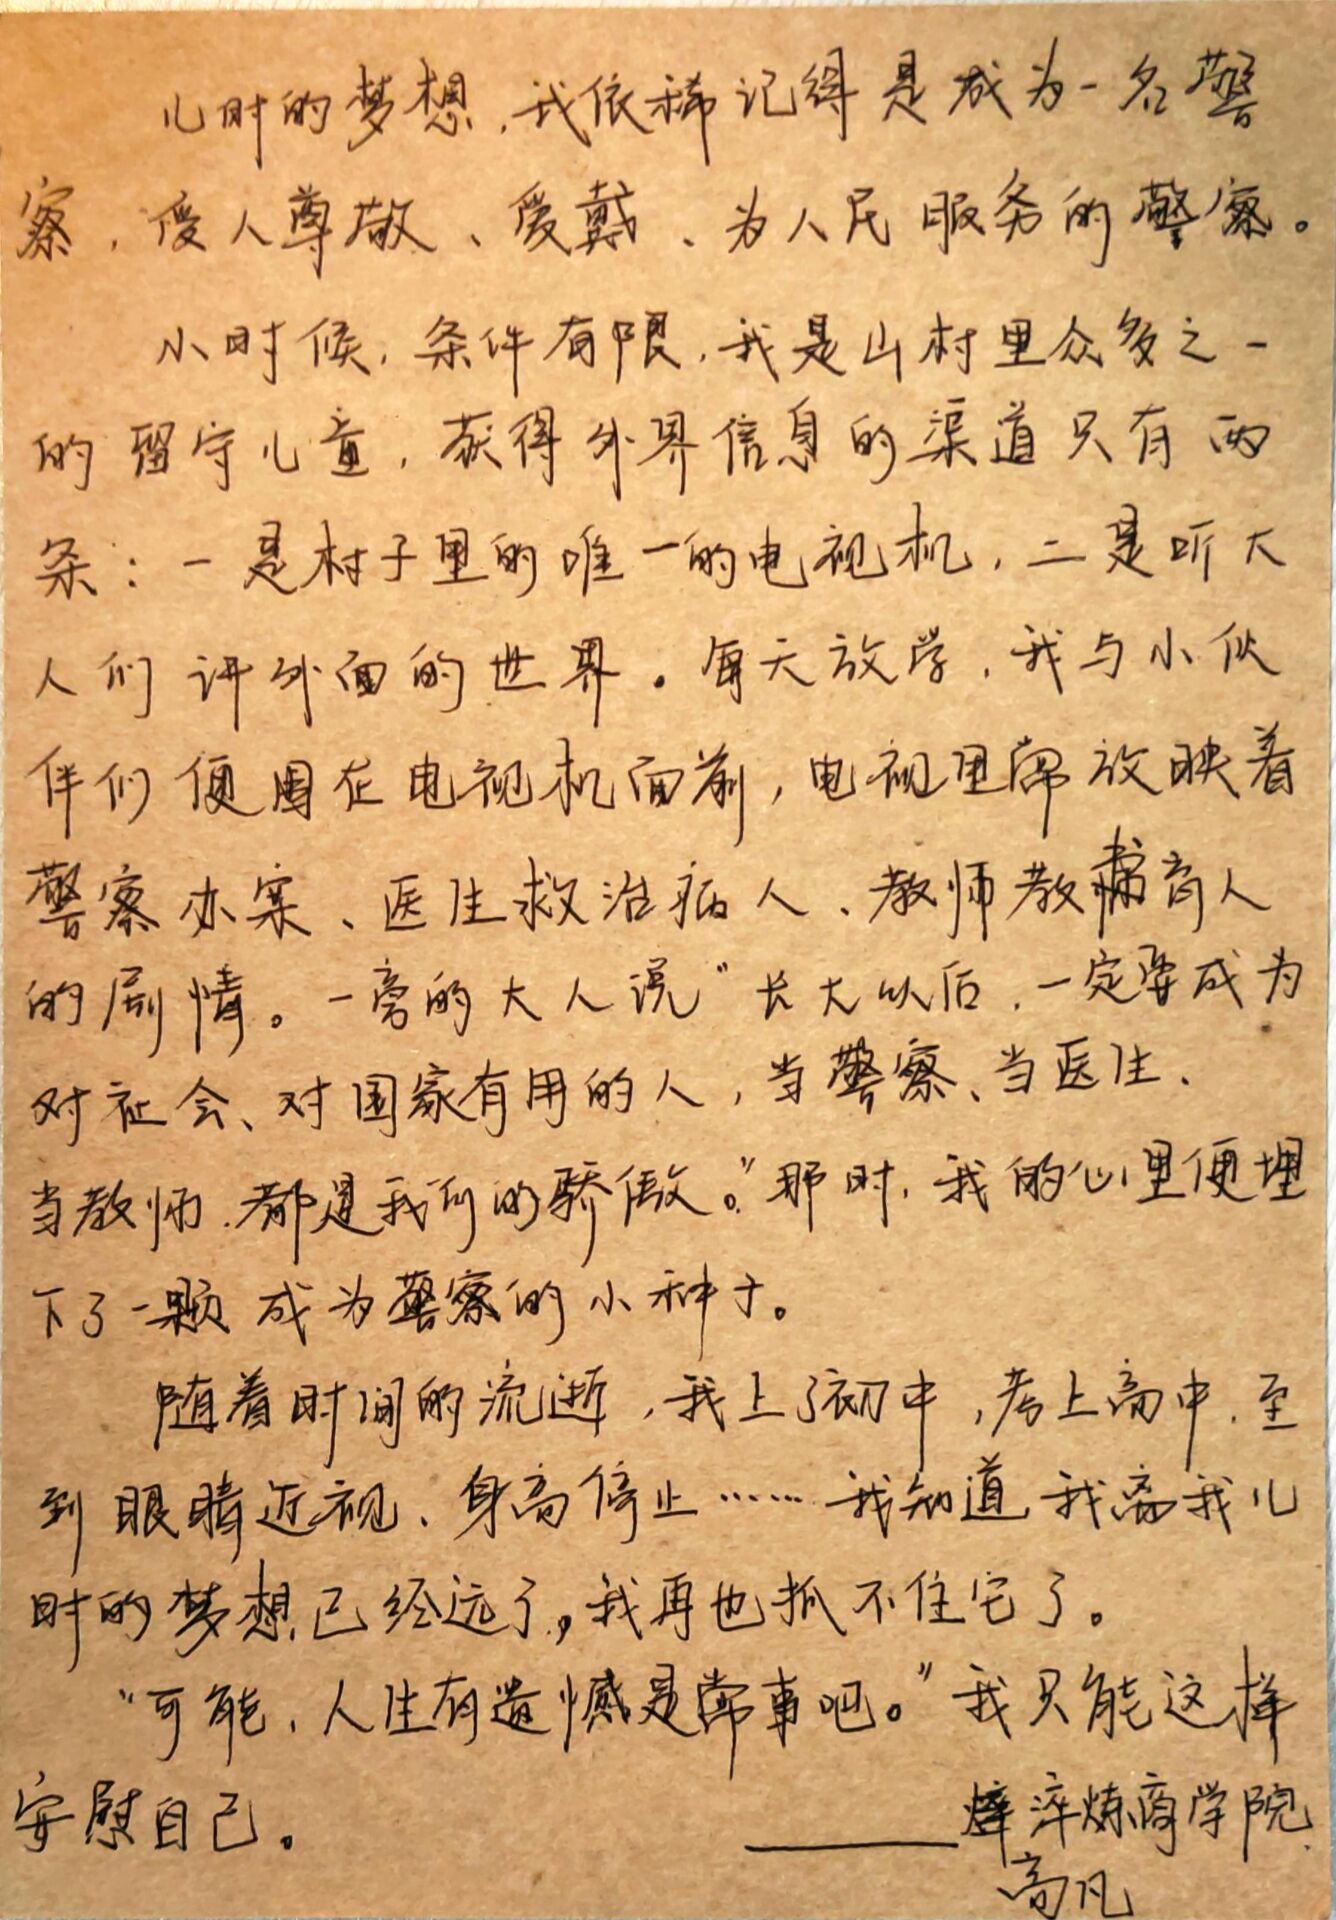 儿时的梦想，我依稀记得是成为一名警
察，受人尊敬、爱戴、为人民服务的警察。
小时候，条件有限，我是山村里众多之一
的留守儿童，获得外界信息的渠道只有两
条：一是村子里的唯一的电视机，二是听大
人们讲外面的世界。每天放学，我与小伙
伴们便围在电视机面前，电视里常放映着
警察办案、医生救治病人、教师教书育人
的剧情。一旁的大人说“长大以后，一定要成为
对社会、对国家有用的人，当警察、当医生、
当教师，都是我们的骄傲。”那时，我的心里便埋
下了一颗成为警察的小种子。
随着时间的流逝，我上了初中，考上高中，至
到眼睛近视、身高停止……我知道我离我儿
时的梦想已经远了，我再也抓不住它了。
“可能，人生有遗憾是常事吧。”我只能这样
安慰自己。
——淬炼商学院
高凡